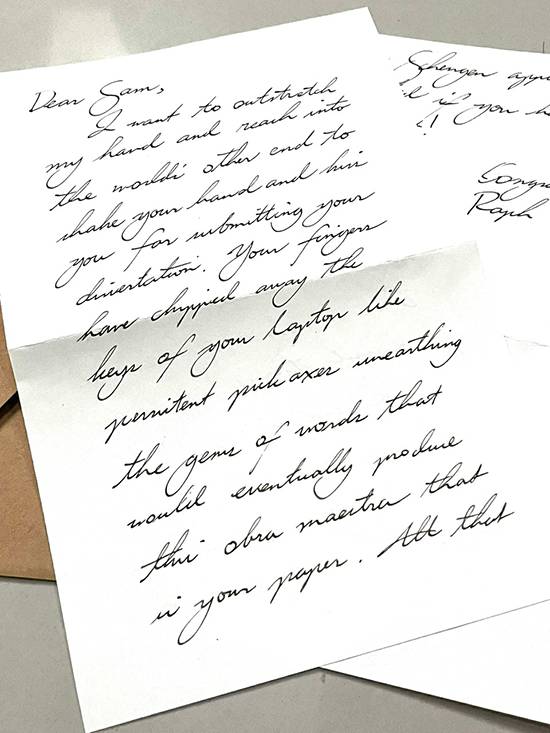 Dear Sam,
I want to outstretch
my hand and reach into
the world's other end to
shake your hand and kiss
you for submitting your
dissertation. Your fingers
have chipped away the
keys of your laptop like
persistent pick axes unearthing
the gems of words that
would eventually produce
this obra maestra that
is your paper. All that
Schengen
if you
Raph